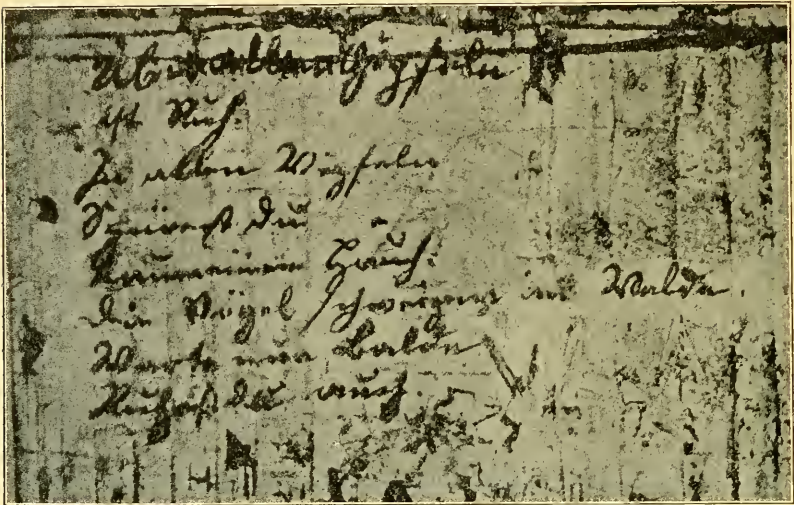 Über allen Gipfeln
ist Ruh
In allen Wipfeln
Spürest du
kaum einen Hauch.
die Vögel schweigen im Walde.
Warte nur balde
Ruhest du auch.